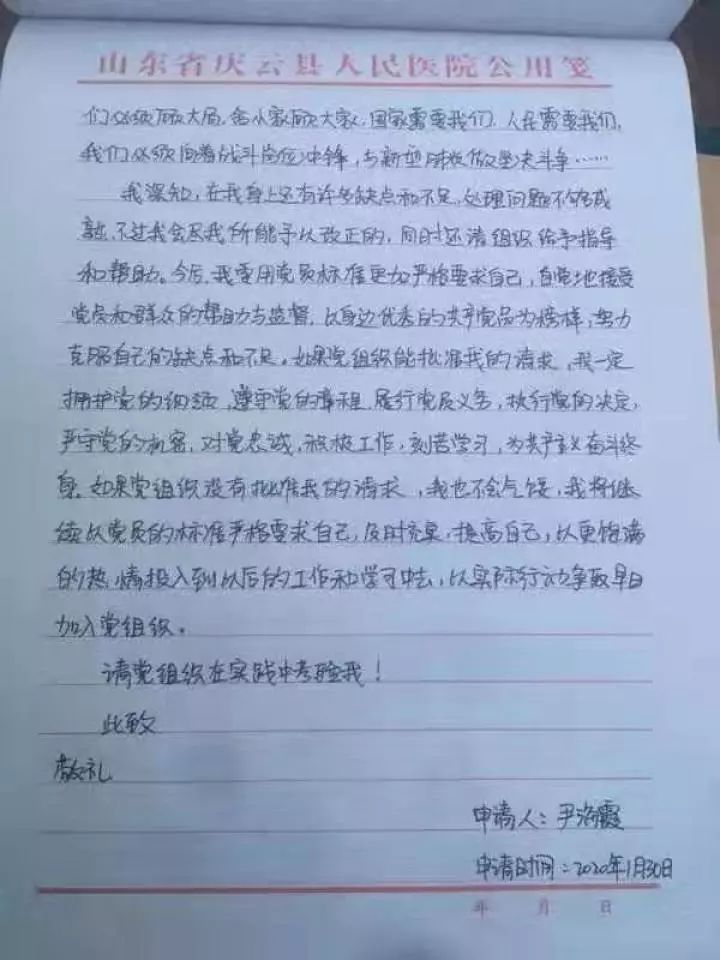 山东省庆云县人民医院公用笺
们必须顾大局,舍小家顾大家,国家需要我们,人民需要我们,
我们必须向着战斗岗位冲锋,与新型肺炎做坚决斗争……
我深知,在我身上还有许多缺点和不足,处理问题不够成
熟,不过我会尽我所能予以改正的,同时还请组织给予指导
和帮助。今后,我要用党员标准更加严格要求自己,自觉地接受
党员和群众的帮助与监督,以身边优秀的共产党员为榜样,努力
克服自己的缺点和不足。如果党组织能批准我的请求,我一定
拥护党的纲领,遵守党的章程,履行党员义务,执行党的决定,
严守党的机密,对党忠诚,积极工作,刻苦学习,为共产主义奋斗终
身。如果党组织没有批准我的请求,我也不会气馁,我将继
续以党员的标准严格要求自己,及时充实,提高自己,以更饱满
的热情投入到以后的工作和学习中去,以实际行动争取早日
加入党组织。
请党组织在实践中考验我!
此致
敬礼
申请人:尹洛霞
申请时间:2020年1月30日
年 月 日